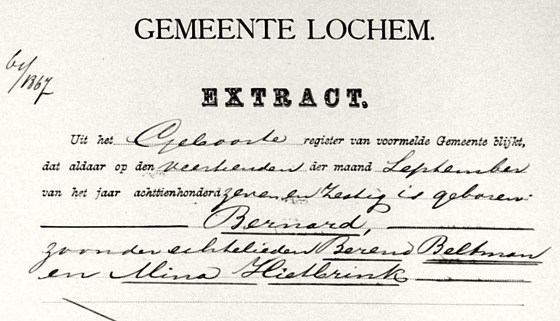 GEMEENTE LOCHEM.
61/1867
EXTRACT.
Uit het Geboorte register van voormelde Gemeente blijkt,
dat aldaar op den veertienden der maand September
van het jaar achttienhonderd zeven en zestig is geboren:
Bernard,
zoon der echtelieden Berend Beltman
en Mina Hietbrink